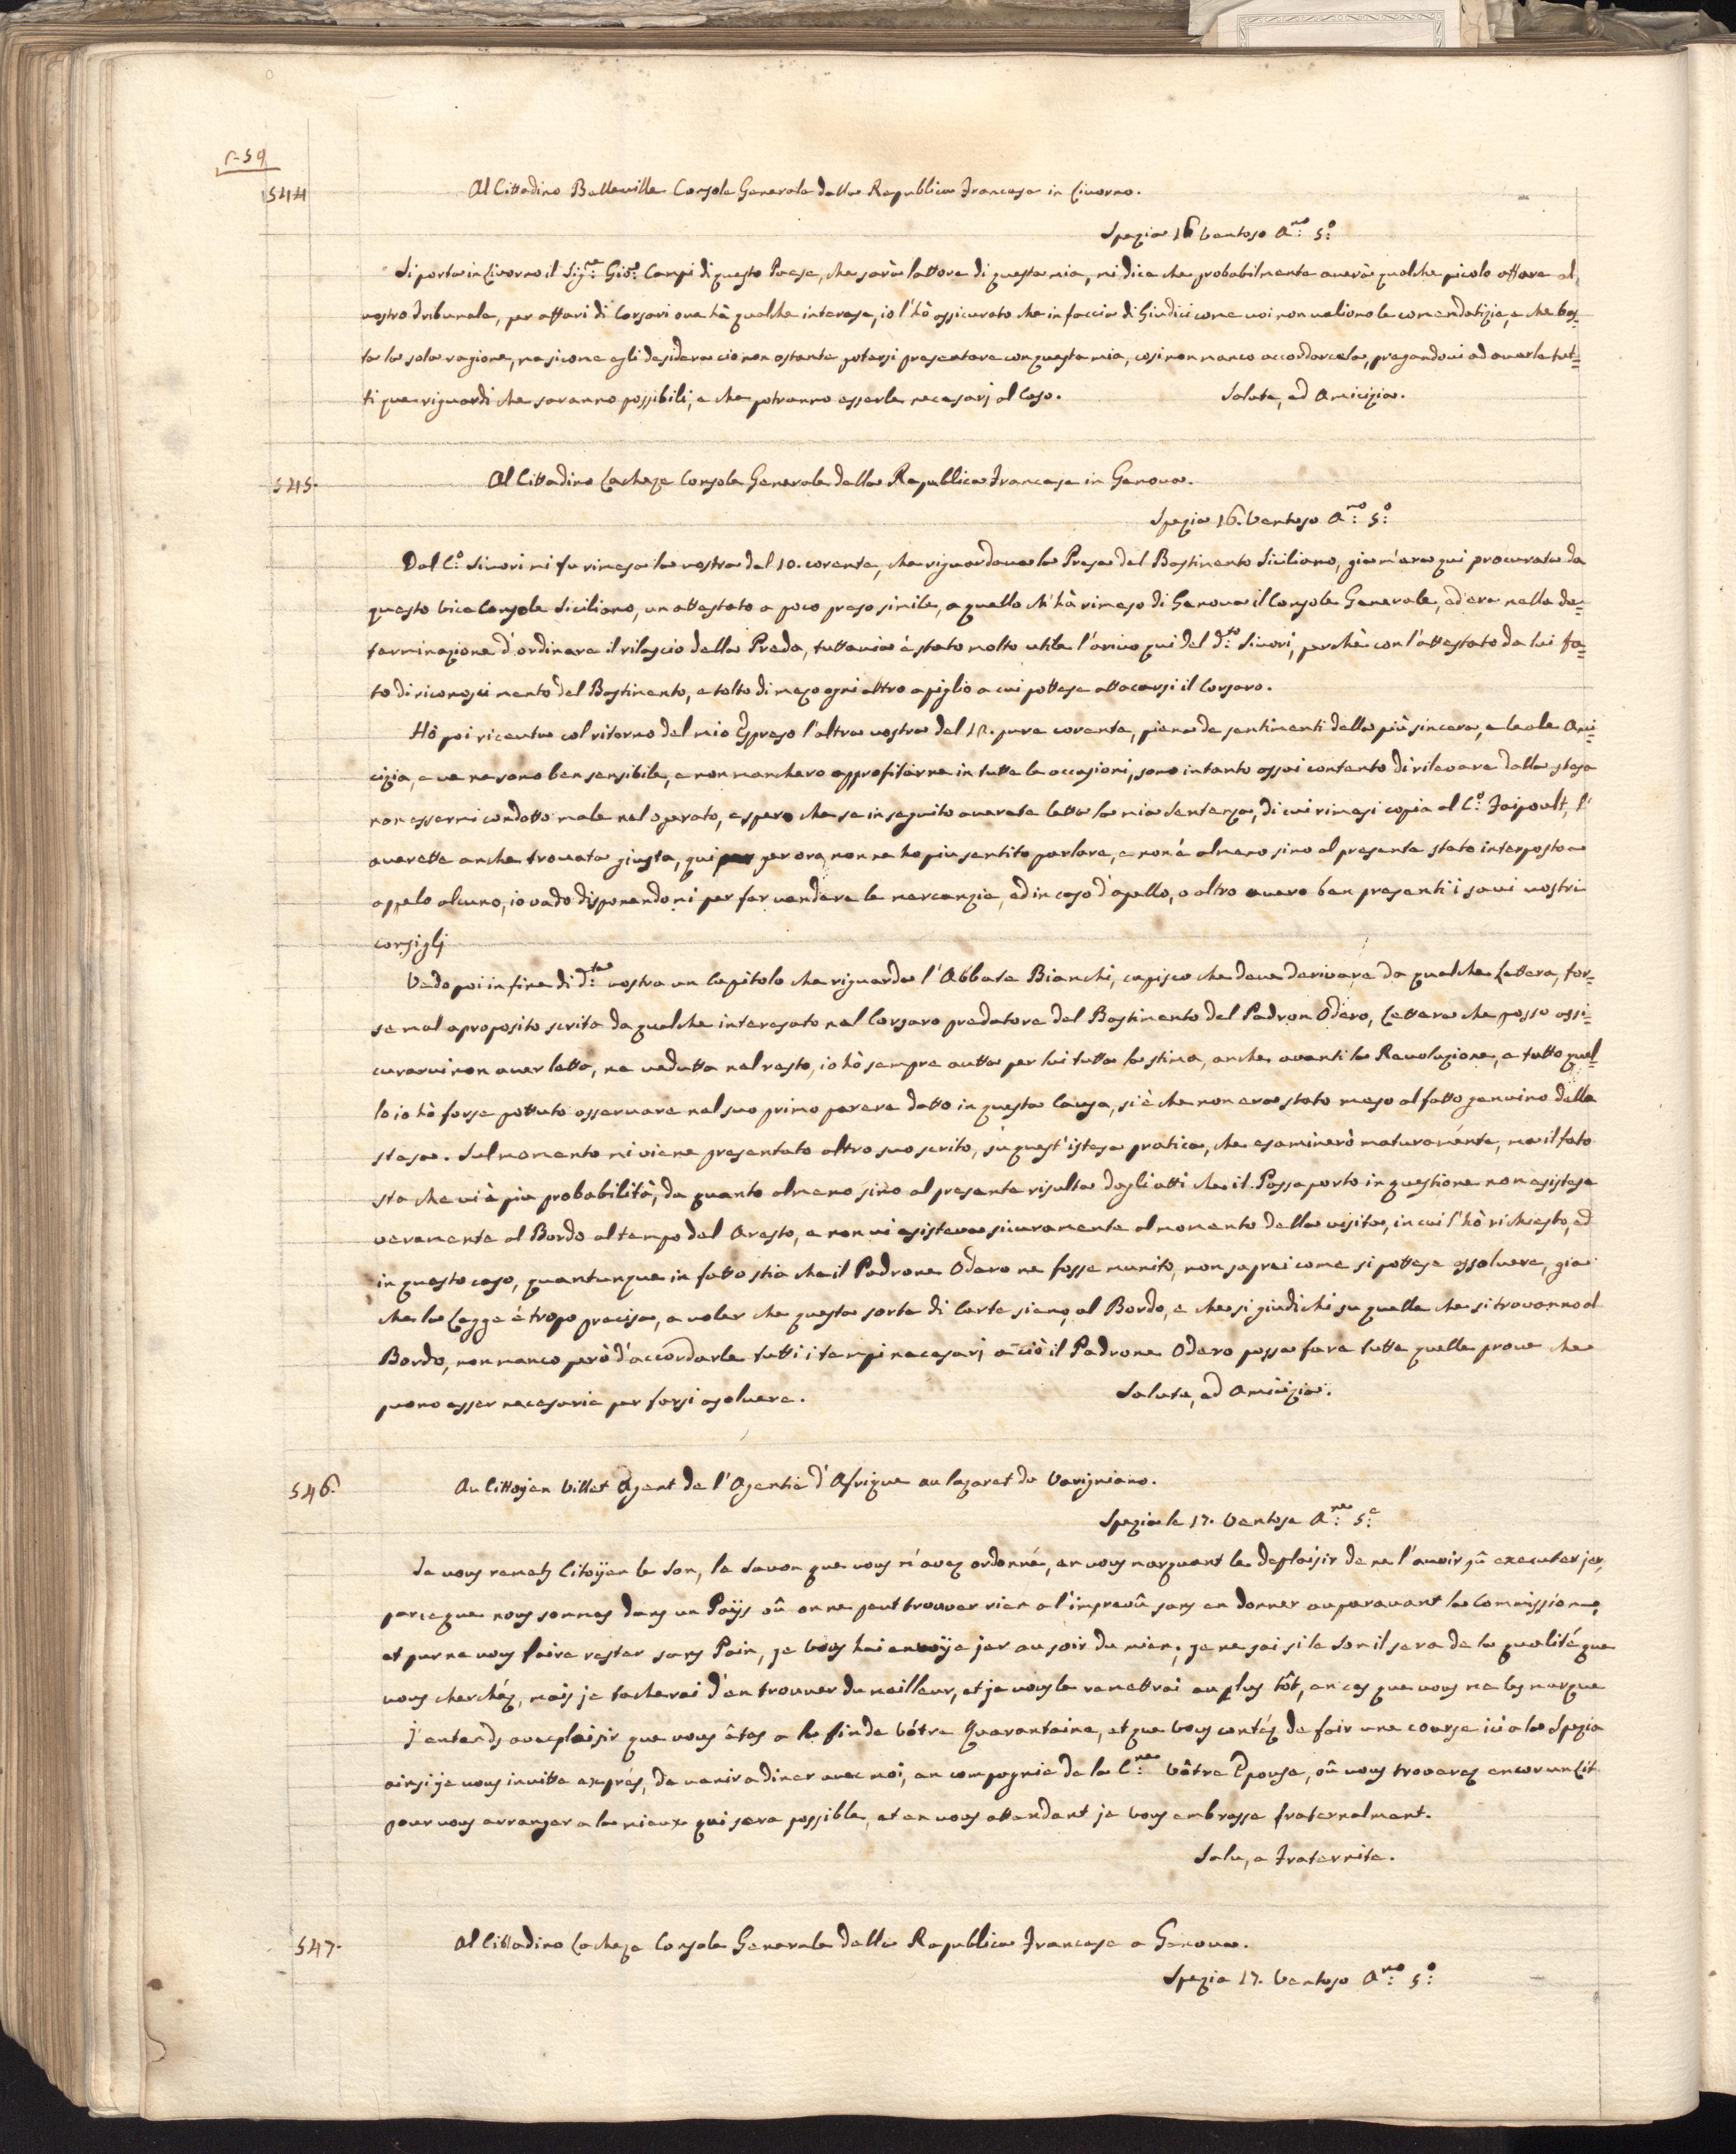 544
Al Cittadino Belleville Console Generale della Republica Francese in Livorno.
Spezia 16 Ventoso A.no 5.o
Si porta in Livorno il Sig.re Gio: Campi di questo Paese, che sarà lattore di questa mia, mi dice che probabilmente averà qualche picolo affare al
vostro Tribunale, per affari di Corsari ove hà qualche interesse, io l'hò assicurato che in faccia di Giudici come voi non valiono le comendatizie, e che bas=
ta la sola ragione, ma sicome egli desidera ciò non ostante potersi presentare con questa mia, cosi non manco accordarcela, pregandovi ad averle tut=
ti que riguardi che saranno possibili, e che potranno esserle necesarj al Caso. Salute, ed Amicizia.
545.
Al Cittadino Lacheze Console Generale della Republica Francese in Genova.
Spezia 16. Ventoso A.no 5.o
Dal C.o Sivori mi fu rimesa la vostra del 10. corente, che riguardava la Presa del Bastimento Siciliano, gia m'era qui procurata da
questo Vice Console Siciliano, un attestato a poco preso simile, a quello ch'hà rimeso di Genova il Console Generale, ed era nella de=
terminazione d'ordinare il rilascio della Preda, tuttavia è stato molto utile l'arivo qui del d.to Sivori, perchè con l'attestato da lui fa=
to di riconoscimento del Bastimento, e tolto di mezo ogni altro apiglio a cui pottese attacarsi il Corsaro.
Hò poi riceuta col ritorno del mio Espreso l'altra vostra del 12. pure corente, piena de sentimenti della più sincera, e leale Ami=
cizia, e ve ne sono ben sensibile, e non manchero approfitarne in tutte le occasioni, sono intanto assai contento di rilevare dalla stesa
non essermi condotto male nel operato, e spero che se in seguito averete letta la mia Sentenza, di cui rimesi copia al C.o Faipoult, l'
averette anche trovata giusta, qui per ora non ne ho piu sentito parlare, e non è almeno sino al presente stato interposto
appelo alcuno, io vado disponendomi per far vendere le mercanzie, ed in caso d'apello, o altro avero ben presenti i savi vostri
consiglj
Vedo poi in fine di d.ta vostra un Capitolo che riguarda l'Abbate Bianchi, capisco che deve derivare da qualche Lettera, for=
se mal aproposito scrita da qualche interesato nel Corsaro predatore del Bastimento del Padron Odero, Lettera che posso assi=
curarvi non aver letta, ne vedutta nel resto, io hò sempre autta per lui tutta la stima, anche avanti la Revoluzione, e tutto quel=
lo io hò forse pottuto osservare nel suo primo parere datto in questa Causa, si è che non era stato meso al fatto genuino della
stesa. Sul momento mi viene presentato altro suo scrito, su quest'istesa pratica, che esaminerò maturamente, ma il fato
sta che vi è piu probabilità, da quanto almeno sino al presente risulta dagli atti che il Passaporto in questione non esistese
veramente al Bordo al tempo del Aresto, e non vi esisteva sicuramente al momento della visita, in cui l'hò richiesto, ed
in questo caso, quantunque in fatto stia che il Padrone Odero ne fosse munito, non saprei come si pottese assolvere, gia
che la Legge è tropo precisa, a voler che questa sorte di Carte siano al Bordo, e che si giudichi su quelle che si trovanno al
Bordo, non manco però d'accordarle tutti i tempi necesarj acciò il Padrone Odero possa fare tutte quelle prove che
puono esser necesarie per farsi asolvere. Salute, ed Amicizia.
546.
Au Cittoyen Villet Agent de l'Agentie d'Afrique au lazaret du Varigniano.
Spezia le 17. Ventose A.ne 5.e
Je vous remets Citoÿen le Son, le Savon que vous m'avez ordonné, en vous marquant le deplaisir de ne l'avoir pû executer jer,
parceque nous sommes dans un Païis oû on ne peut trouver rien a l'imprevû sans en donner auparavant la Commission,
et pur ne vous faire rester sans Pain, je Vous hai envoÿe jer au soir du mien; je ne sai si le Son il sera de la qualité que
vous cherchéz, mais je tacherai d'en trouver du meilleur, et je vous le remettrai au plus tôt, en cas que vous me les marque
J'entends avec plaisir que vous êtes a la fin de vôtre Quarantaine, et que Vous contéz de fair une course ici a la Spezia
ainsi je vous invitte exprés, de venir a diner avec moi, en compagnie de la C.ne Vôtre Epouse, oû vous troverez encor un Lit
pour vous arranger a la mieux qui sera possible, et en vous attendant je Vous embrasse fraternalment.
Salu, e Fraternite.
547.
Al Cittadino Lacheze Console Generale della Republica Francese a Genova.
Spezia 17. Ventoso A.no 5.o